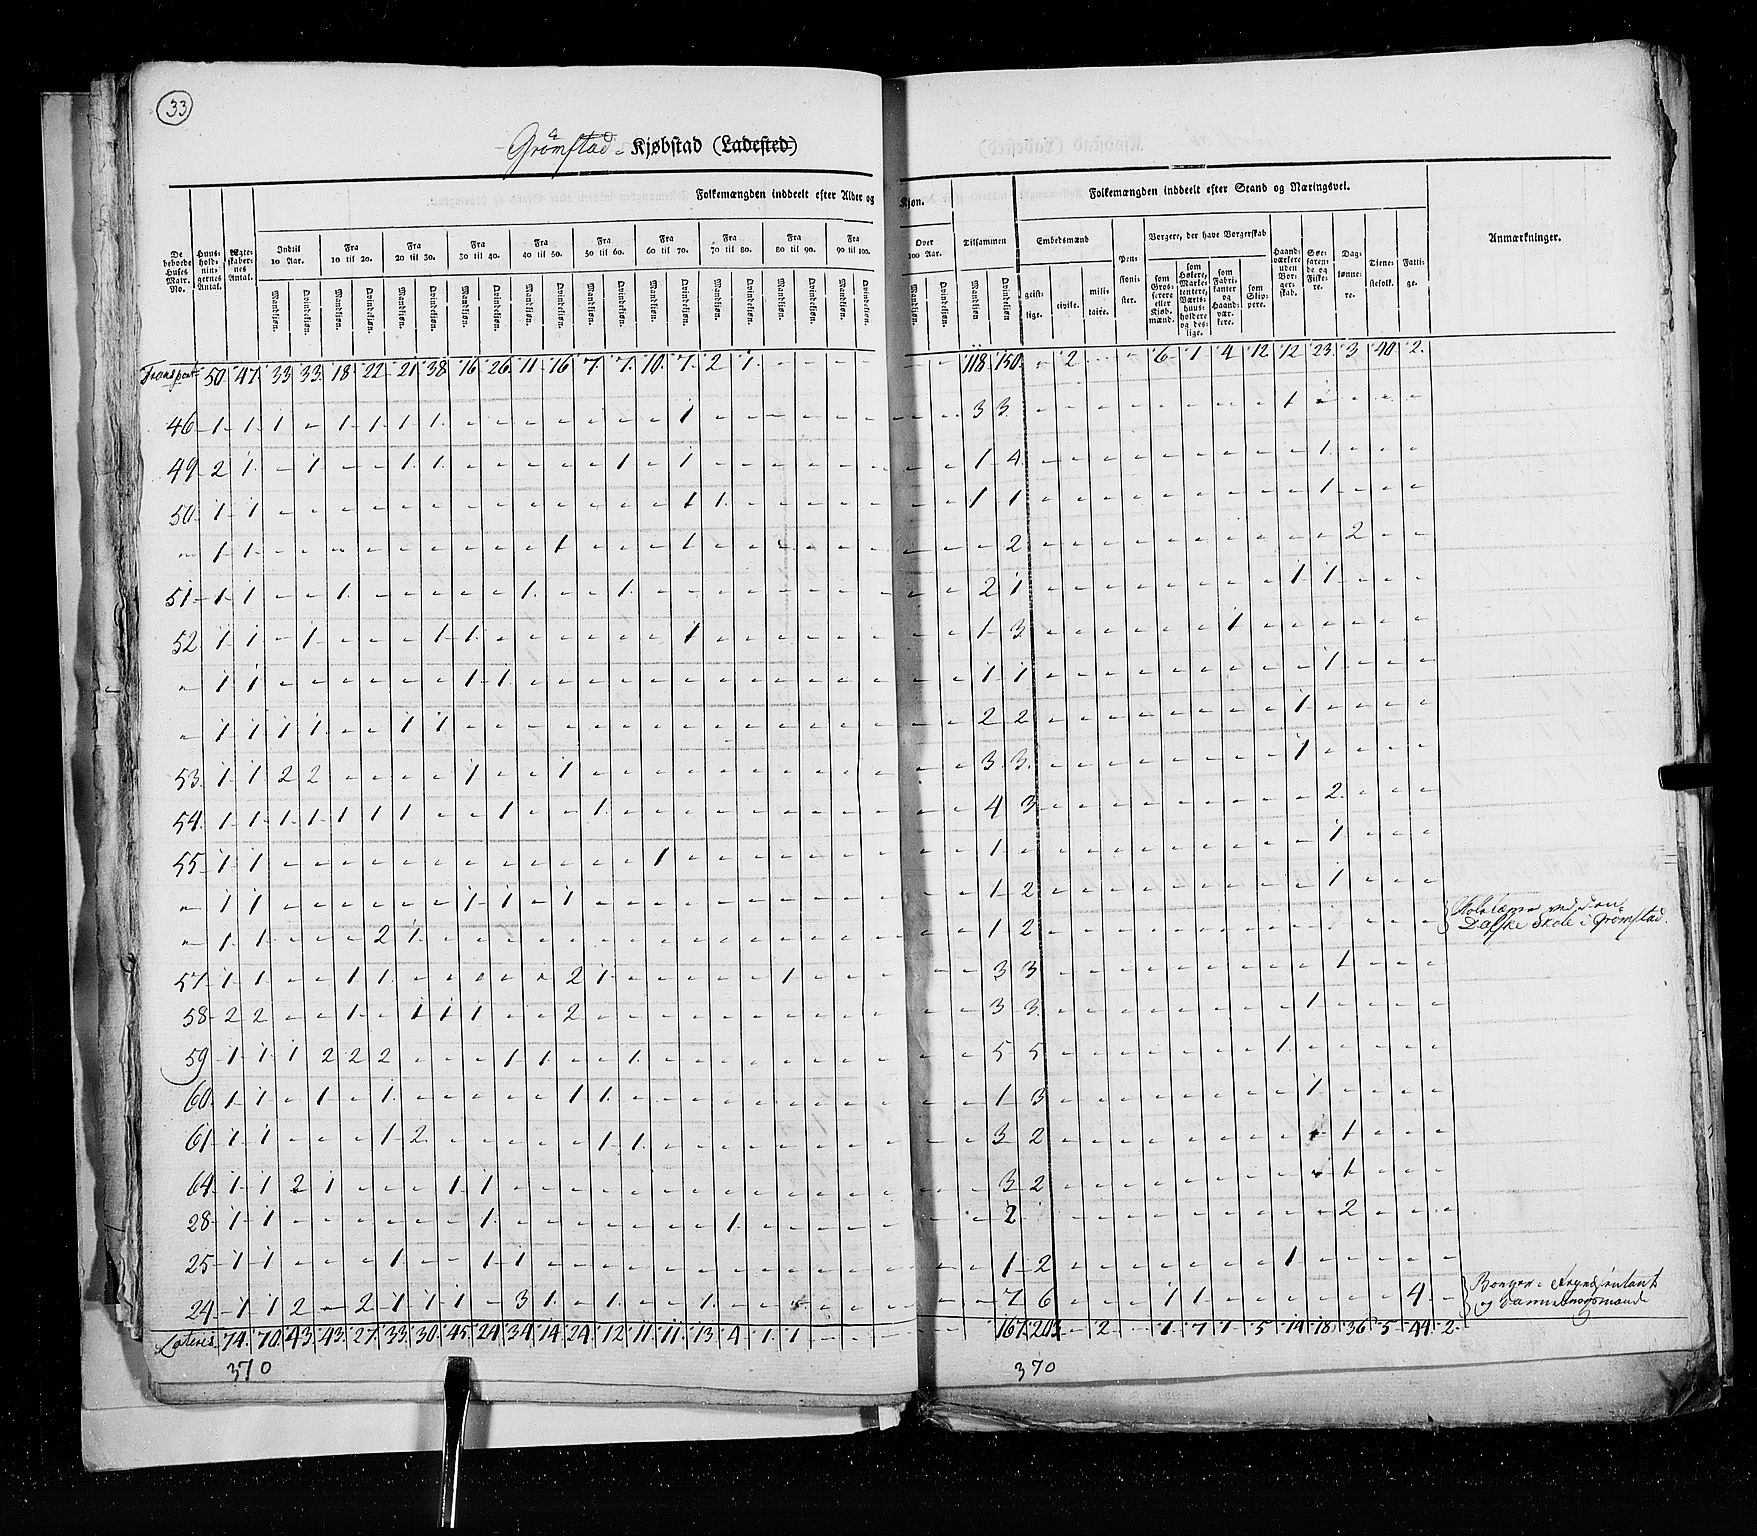 33
Grømstad Kjøbstad (Ladested)
Folkemængden inddeelt efter Alder og Kjøn.
Folkemængden inddeelt efter Stand og Næringsvei.
De beboede Huses Matr. No.
Huus-hold-nin-gernes Antal.
Ægte-skaber-nes Antal.
Indtil 10 Aar.
Fra 10 til 20.
Fra 20 til 30.
Fra 30 til 40.
Fra 40 til 50.
Fra 50 til 60.
Fra 60 til 70.
Fra 70 til 80.
Fra 80 til 90.
Fra 90 til 100.
Over 100 Aar.
Tilsammen
Embedsmænd
Pen-sioni-ster.
Borgere, der have Borgerskab
Haand-værkere uden Bor-ger-skab.
Søe-faren-de og Fiske-re.
Dag-lønne-re.
Tjene-stefolk.
Fatti-ge.
Anmærkninger.
Mandkjøn. Qvindekjøn. Mandkjøn. Qvindekjøn. Mandkjøn. Qvindekjøn. Mandkjøn. Qvindekjøn. Mandkjøn. Qvindekjøn. Mandkjøn. Qvindekjøn. Mandkjøn. Qvindekjøn. Mandkjøn. Qvindekjøn. Mandkjøn. Qvindekjøn. Mandkjøn. Qvindekjøn. Mandkjøn. Qvindekjøn. Mandkjøn. Qvindekjøn.
geist-lige. civile. mili-taire.
som Gros-serere eller Kjøb-mænd.
som Høkere, Marke-tentere, Værts-huus-holdere og des-lige.
som Fabri-kanter og Haand-vær-kere.
som Skip-pere.
Transport 50 47 33 33 18 22 21 38 16 26 11 16 7 7 10 7 2 1 - - - - - - 118 150 - 2 - - 6 1 4 12 12 23 3 40 2
46 1 1 1 - 1 1 1 1 - - - - - - - 1 - - - - - - - - 3 3 - - - - - - - - 1 - - - -
49 2 1 - 1 - - 1 1 - - - - - 1 - 1 - - - - - - - - 1 4 - - - - - - - - - 1 - - -
50 1 1 - - - - - - - - - - - - - 1 1 - - - - - - - 1 1 - - - - - - - - - 1 - - -
" 1 1 - - - - - - - - - 1 - - - 1 - - - - - - - - - 2 - - - - - - - - - - 2 - -
51 1 1 - - 1 - - - - - 1 - - 1 - - - - - - - - - - 2 1 - - - - - - - - 1 1 - - -
52 1 1 - 1 - - - 1 1 - - - - - - 1 - - - - - - - - 1 3 - - - - - - 1 - - - - - -
" 1 1 - - - - - - 1 1 - - - - - - - - - - - - - - 1 1 - - - - - - - - - 1 - - -
" 1 1 1 1 - - 1 1 - - - - - - - - - - - - - - - - 2 2 - - - - - - - - 1 - - - -
53 1 1 2 2 - - - - 1 - - 1 - - - - - - - - - - - - 3 3 - - - - - - - - 1 - - - -
54 1 1 1 1 1 1 1 - - 1 - - 1 - - - - - - - - - - - 4 3 - - - - - - - - - 2 - - -
55 1 1 - - - - - - - - - - - - 1 - - - - - - - - - 1 - - - - - - - - - - 1 - - -
" 1 1 - - - - - - 1 1 - 1 - - - - - - - - - - - - 1 2 - - - - - - - - - 1 - - -
" 1 1 - - - 2 1 - - - - - - - - - - - - - - - - - 1 2 - - - - - - - - - - - - -
ved den
Skole i Grømstad.
57 1 1 - - 1 1 - - - - - 2 1 - - - - - 1 - - - - - 3 3 - - - - - - - - - 1 - - -
58 2 2 - - 1 - 1 1 1 - - 2 - - - - - - - - - - - - 3 3 - - - - - - - - 1 - - - -
59 1 1 1 2 2 2 - - - 1 1 - - 1 - - - - - - - - - - 5 5 - - - - - - - 1 - - - - -
60 1 1 - 1 - 1 - - - - - 1 1 - - - - - - - - - - - 1 3 - - - - - - - - 1 - - - -
61 1 1 - - - 1 2 - - - - - 1 1 - - - - - - - - - - 3 2 - - - - - - - - - 1 - - -
64 1 1 2 1 - - - 1 1 - - - - - - - - - - - - - - - 3 2 - - - - - - - - - 1 - - -
28 1 1 - - - - - - 1 - - - - - - - 1 - - - - - - - 2 - - - - - - - - - 2 - - -
25 1 1 - - - 1 - - 1 1 - - - - - - - - - - - - - - 1 2 - - - - - - - 1 - - - - -
24 1 1 2 - 2 1 1 1 - 3 1 - 1 - - 1 - - - - - - - - 7 6 - - - 1 1 - - - - - - 4 -
og Dannebrogsmand
Lateris 74 70 43 43 27 33 30 45 24 34 14 24 12 11 11 13 4 1 1 - - - - - 167 203 - 2 - 1 7 1 5 14 18 36 5 44 2
370
370